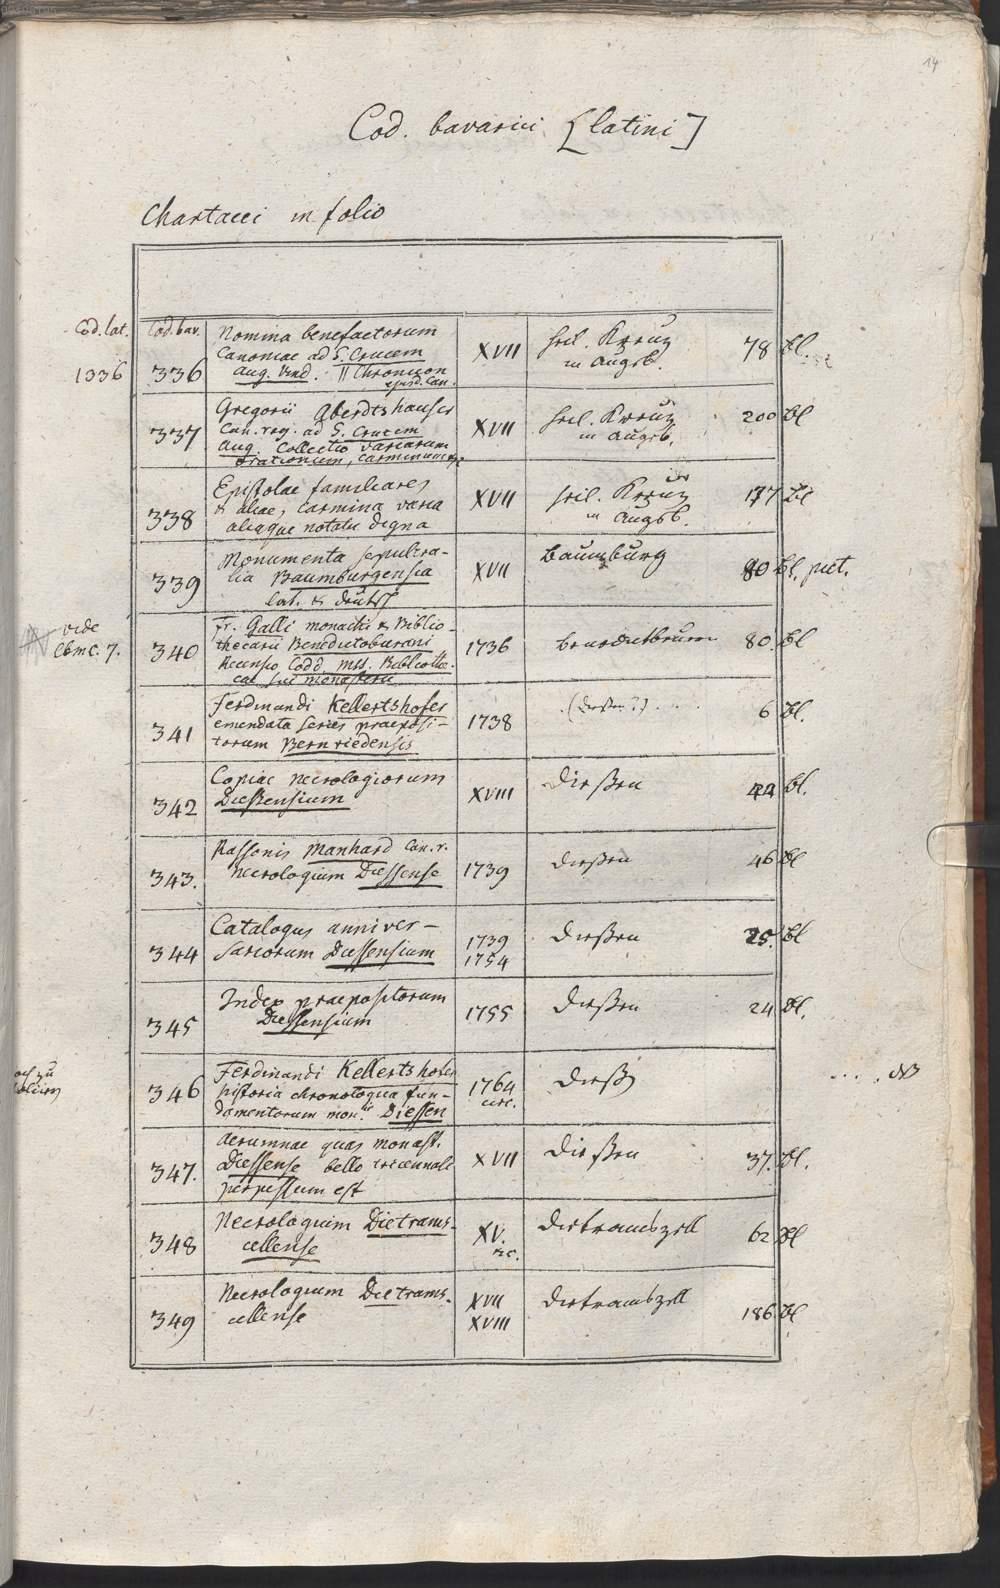 14
Cod. bavarici [latini]
Chartacei in folio
Cod. lat. Cod. bav. Nomina benefactorum
Canoniae ad S. Crucem XVII heil. Kreuz 78 Bl.
1336 336 Aug. Vind. || Chronicon in Augsb.
ejusd. Can.
Gregorii Aberdtshauser
337 Can. reg. ad S. Crucem XVII heil. Kreuz 200 Bl
Aug. Collectio variarum in Augsb.
orationum, carminum etc.
Epistolae familiares
338 & aliae, carmina varia XVII heil. Kreuz 177 Bl
aliaque notatu digna in Augsb.
Monumenta sepulcra-
339 lia Baumburgensia XVII Baumburg 80 Bl. pict.
lat. & deutsch
vide Fr. Galli monachi & Biblio-
Cbmc. 7. 340 thecarii Benedictoburani 1736 Benedictbeurn 80. Bl
Recensio Codd. mss. Bibliothe-
cae sui monasterii
Ferdinandi Kellertshofer
341 emendata series praeposi- 1738 (Dießen?) 6 Bl.
torum Bernriedensis
Copiae necrologiorum
342 Diessensium XVIII Dießen 44 Bl.
Rassonis Manhard Can. r.
343. necrologium Diessense 1739 Dießen 46 Bl
Catalogus anniver-
344 sariorum Diessensium 1739 Dießen 25. Bl
1754
Index praepositorum
345 Diessensium 1755 Dießen 24 Bl.
Ferdinandi Kellertshofer
346 historia chronologica fun- 1764 Dieß
damentorum mon.rii Diessen circ.
Aerumnae quas monast.
347. Diessense bello tricennali XVII Dießen 37. Bl.
perpessum est
Necrologium Dietrams-
348 cellense XV. Dietramszell 62 Bl
Necrologium Dietrams-
349 cellense XVII Dietramszell 186 Bl
XVIII